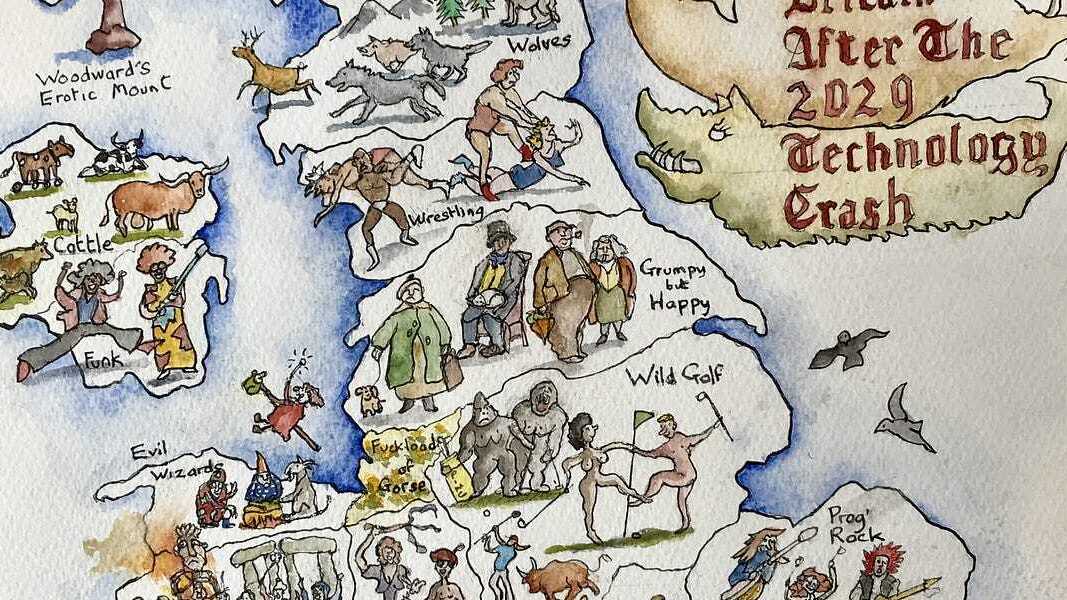 Britain
After The
2029
Technology
Crash
Woodward's
Erotic Mount
Wolves
Wrestling
Cattle
Funk
Grumpy
but
Happy
Wild Golf
Fuckloads
of
Gorse
Evil
Wizards
Prog'
Rock